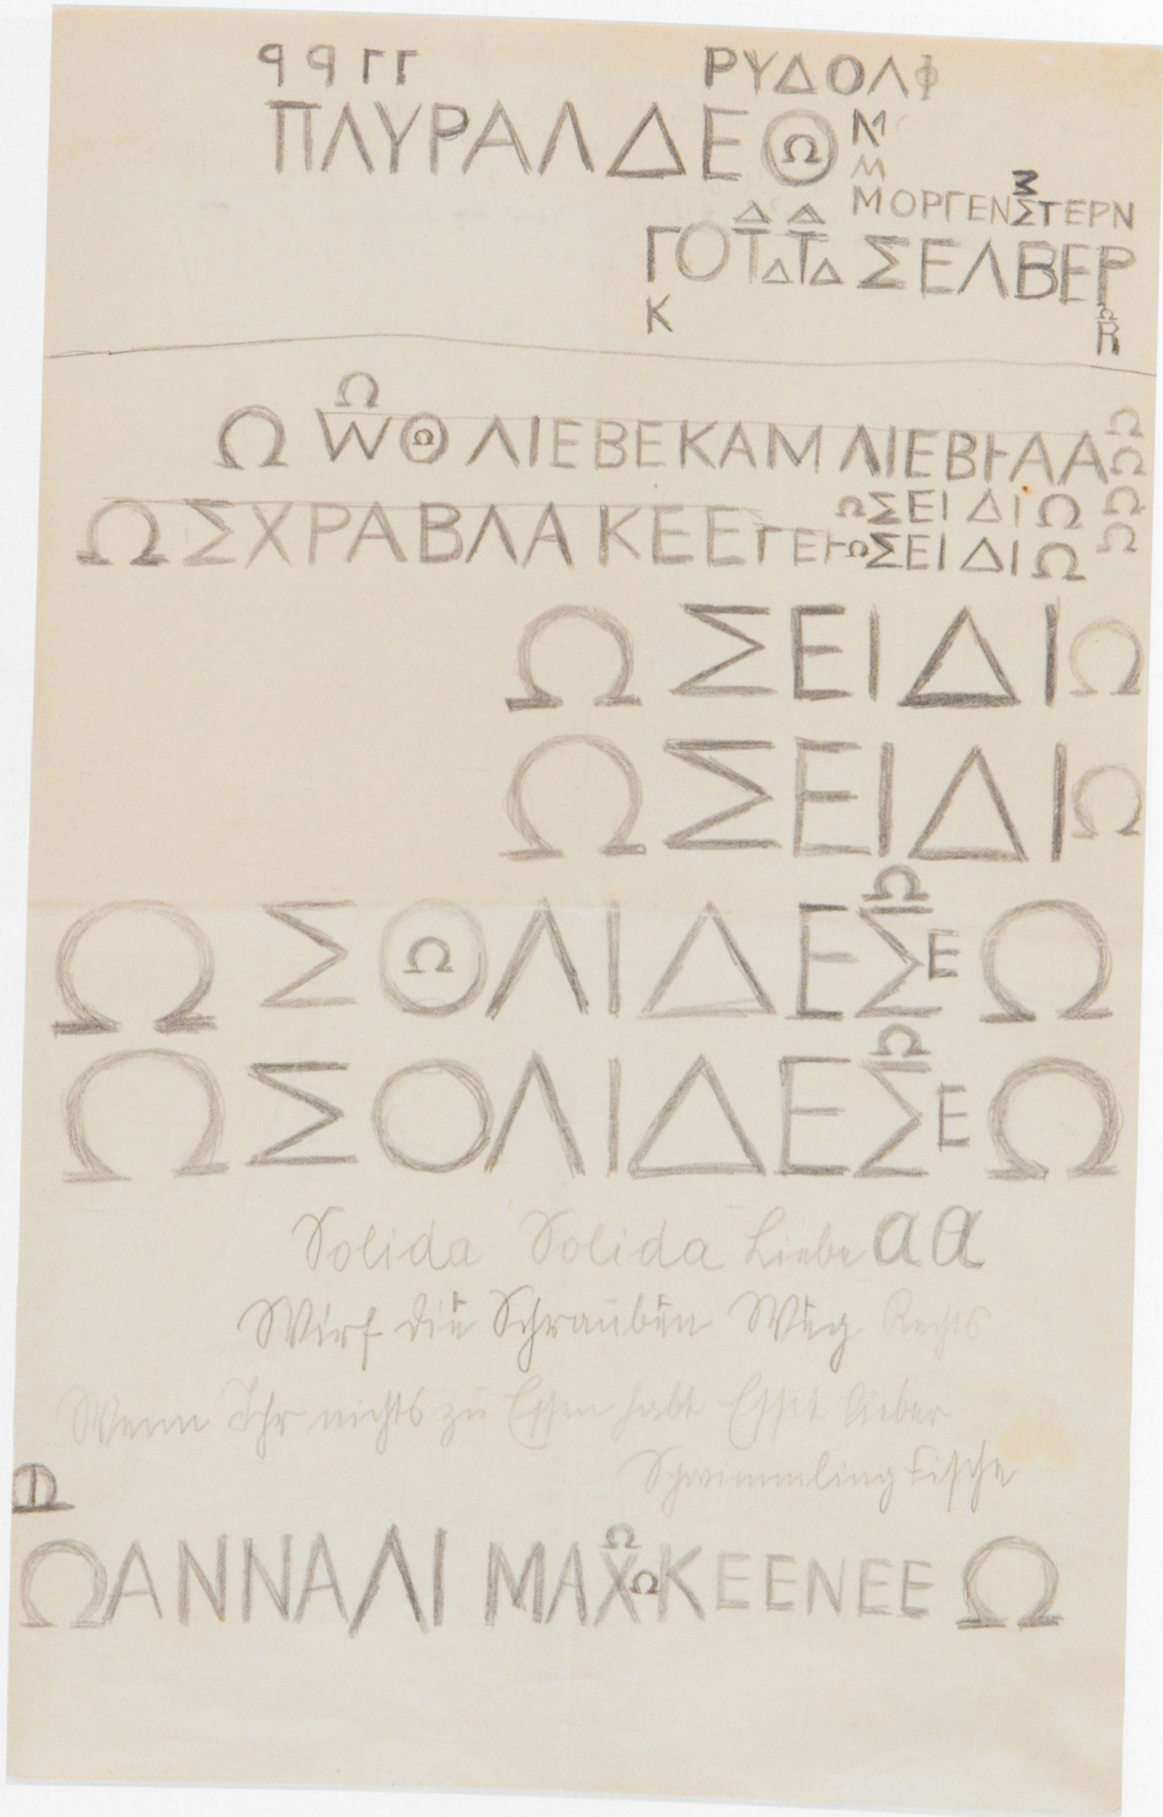 ꟼ ꟼ Γ Γ ΡΥΔΟΛΦ
ΠΛΥΡΑΛΔΕΘ Μ
Μ
ΜΟΡΓΕΝΣΤΕΡΝ
ΓΟΤΔΤΔ ΣΕΛΒΕΡ
Κ R
Ω
Ω WΘ ΛΙΕΒΕ ΚΑΜ ΛΙΕΒͰΑΑ
ΩΣΧΡΑΒΛΑ ΚΕΕΓΕͰ ΩΣΕΙ ΔΙΩ
ΩΣΕΙ ΔΙΩ
ΩΣΕΙΔΙΩ
ΩΣΕΙΔΙΩ
ΩΣΘΛΙΔΕΣΕΩ
ΩΣΟΛΙΔΕΣΕΩ
Solida Solida Liebe a a
Wirf die Schrauben Weg Rechts
Wenn Ihr nichts zu Essen habt Esset lieber
Schwimmling Fische
ΩΑΝΝΑΛΙ ΜΑΧΩΚΕΕΝΕΕ Ω